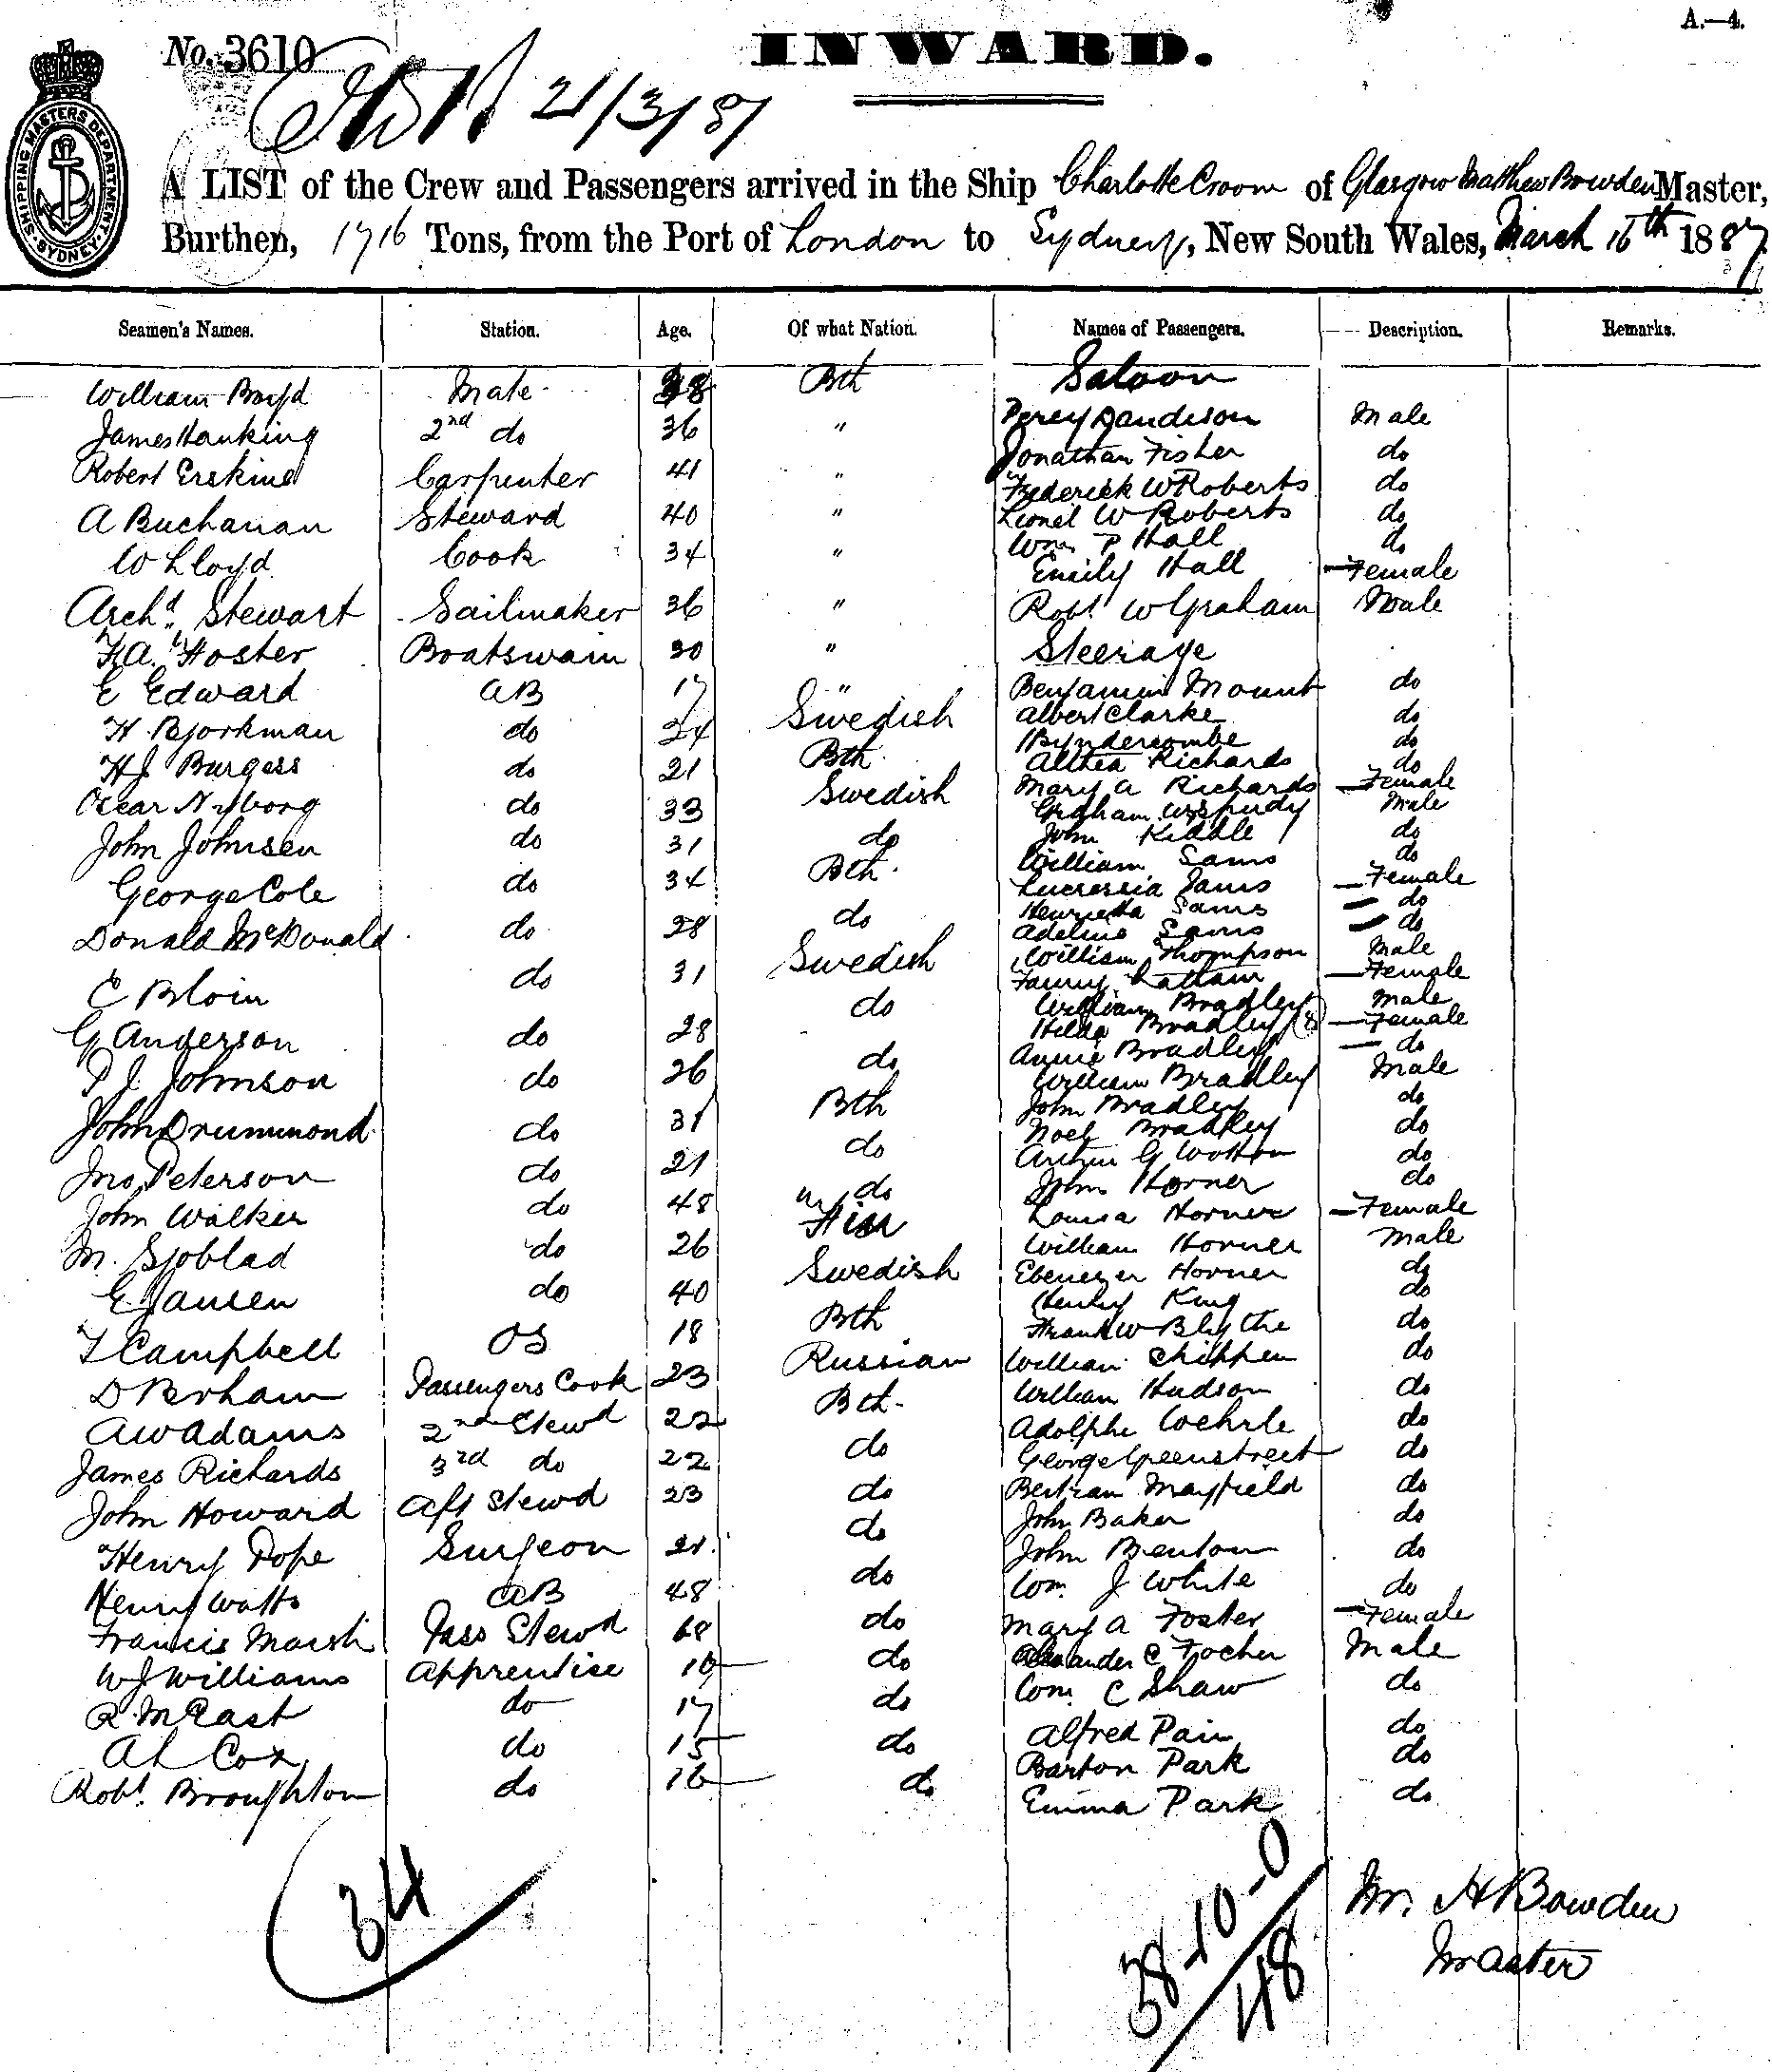 A.—4.
No. 3610
INWARD.
21/3/87
SHIPPING MASTERS DEPARTMENT. SYDNEY
A LIST of the Crew and Passengers arrived in the Ship Charlotte Croom of Glasgow Matthew Bowden Master,
Burthen, 1716 Tons, from the Port of London to Sydney, New South Wales, March 16th 1887
Seamen's Names. Station. Age. Of what Nation. Names of Passengers. Description. Remarks.
William Boyd Mate 38 Bth Saloon
James Hanking 2nd do 36 " Percy Sandison Male
Robert Erskine Carpenter 41 " Jonathan Fisher do
Frederick W Roberts do
A Buchanan Steward 40 " Lionel W Roberts do
W Lloyd Cook 34 " Wm P Hall do
Emily Hall Female
Archd. Stewart Sailmaker 36 " Robt. W Graham Male
F.A. Foster Boatswain 30 " Steerage
E Edward AB 17 " Benjamin Mount do
H. Bjorkman do 24 Swedish Albert Clarke do
do
H J Burgess do 21 Bth. Althea Richards do
Oscar Nyborg do 33 Swedish Mary A Richards Female
Graham Male
John Johnsen do 31 do John Kiddle do
George Cole do 34 Bth. William Sams do
Lucressia Sams Female
Donald McDonald do 28 do Henrietta Sams do
Adeline Sams do
E Bloin do 31 Swedish William Thompson Male
Fanny Latham Female
G Anderson do 28 do William Bradley Male
Hilda Bradley (8) Female
P J Johnson do 26 do Annie Bradley do
William Bradley Male
John Drummond do 31 Bth John Bradley do
Noel Bradley do
Jno. Peterson do 21 do Arthur G Wotton do
John Walker do 48 do John Horner do
M. Sjoblad do 26 Finn Louisa Horner Female
William Horner Male
E Jansen do 40 Swedish Ebenezer Horner do
Henry King do
T Campbell OS 18 Bth Frank W Blythe do
D Berham Passengers Cook 23 Russian William Chippen do
A W Adams 2nd Stewd 22 Bth. William Hudson do
James Richards 3rd do 22 do Adolphe Wehrle do
George Greenstreet do
John Howard Aft Stewd 23 do Bertram Mayfield do
Henry Pope Surgeon 21 do John Baker do
John Benton do
Henry Watts AB 48 do Wm. J White do
Francis Marsh Pass Stewd 68 do Mary A Foster Female
W J Williams Apprentice 16 do Alexander C Focher Male
R. McCast do 17 do Wm. C Shaw do
A L Cox do 15 do Alfred Pain do
Barton Park do
Robt. Broughton do 16 do Emma Park do
34
38-10-0
48
M. H Bowden
Master